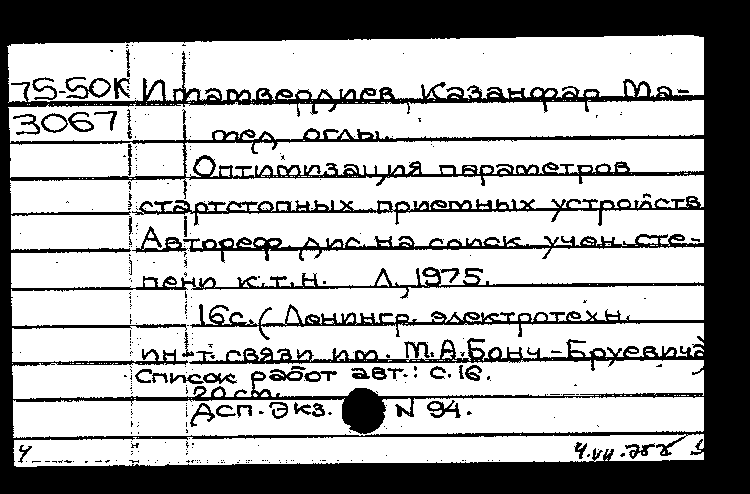 75-50К Имамвердиев, Казанфар Ма-
3067 мед оглы.
Оптимизация параметров
стартстопных приемных устройств
Автореф. дис. на соиск. учен. сте-
пени к.т.н. Л., 1975.
16с. (Ленингр. электротехн.
ин-т. связи им. М.А.Бонч-Бруевича)
Список работ авт.: с.16.
20 см.
ДСП. Экз. N 94.